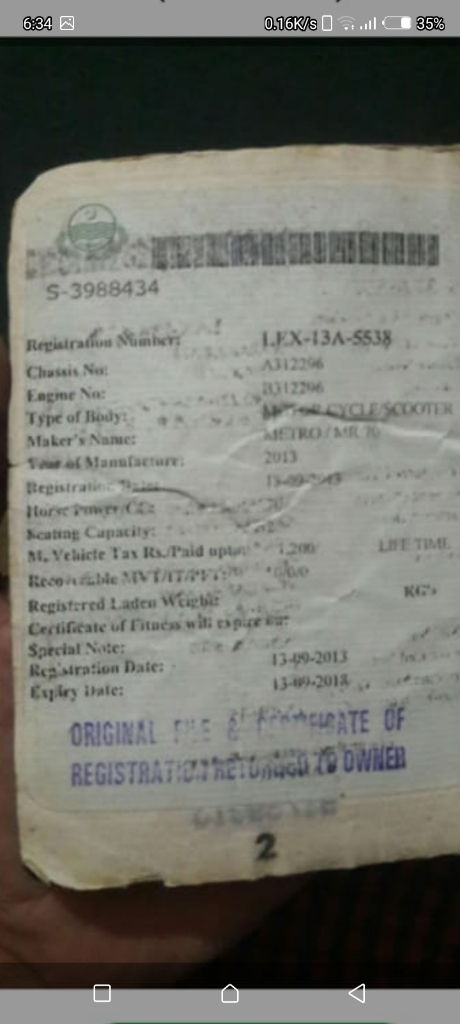 6:34 0.16K/s 35%
S-3988434
Registration Number: LEX-13A-5538
Chassis No: A312296
Engine No: B312296
Type of Body: MOTOR CYCLE/SCOOTER
Maker's Name: METRO / MR 70
Year of Manufacture: 2013
Registration Date: 13-09-2013
Horse Power/CC: 70
Seating Capacity: 2
M. Vehicle Tax Rs./Paid upto: 1,200 LIFE TIME
Recoverable 0/0/0
Registered Laden Weight: KG's
Certificate of Fitness will expire on:
Special Note:
Registration Date: 13-09-2013
Expiry Date: 13-09-2018
ORIGINAL FILE & CERTIFICATE OF
REGISTRATION RETURNED TO OWNER
2